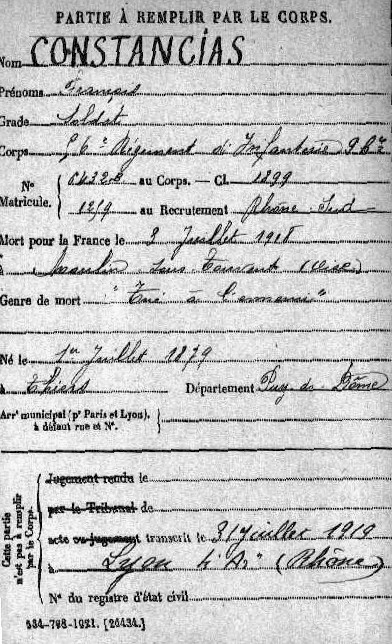 PARTIE À REMPLIR PAR LE CORPS.
Nom CONSTANCIAS
Prénoms François
Grade Soldat
Corps Régiment d'Infanterie
N° Matricule. au Corps. — Cl. 1899
1219 au Recrutement Rhône Sud
Mort pour la France le 2 Juillet 1918
à Moulin sous Touvent (Oise)
Genre de mort "Tué à l'ennemi"
Né le 1er Juillet 1879
à Thiers Département Puy de Dôme
Arrt municipal (pr Paris et Lyon),
à défaut rue et N°.
Cette partie n'est pas à remplir par le Corps.
Jugement rendu le
par le Tribunal de
acte ou jugement transcrit le 31 Juillet 1919
à Lyon 4e Arr (Rhône)
N° du registre d'état civil
534-708-1921. [26434.]